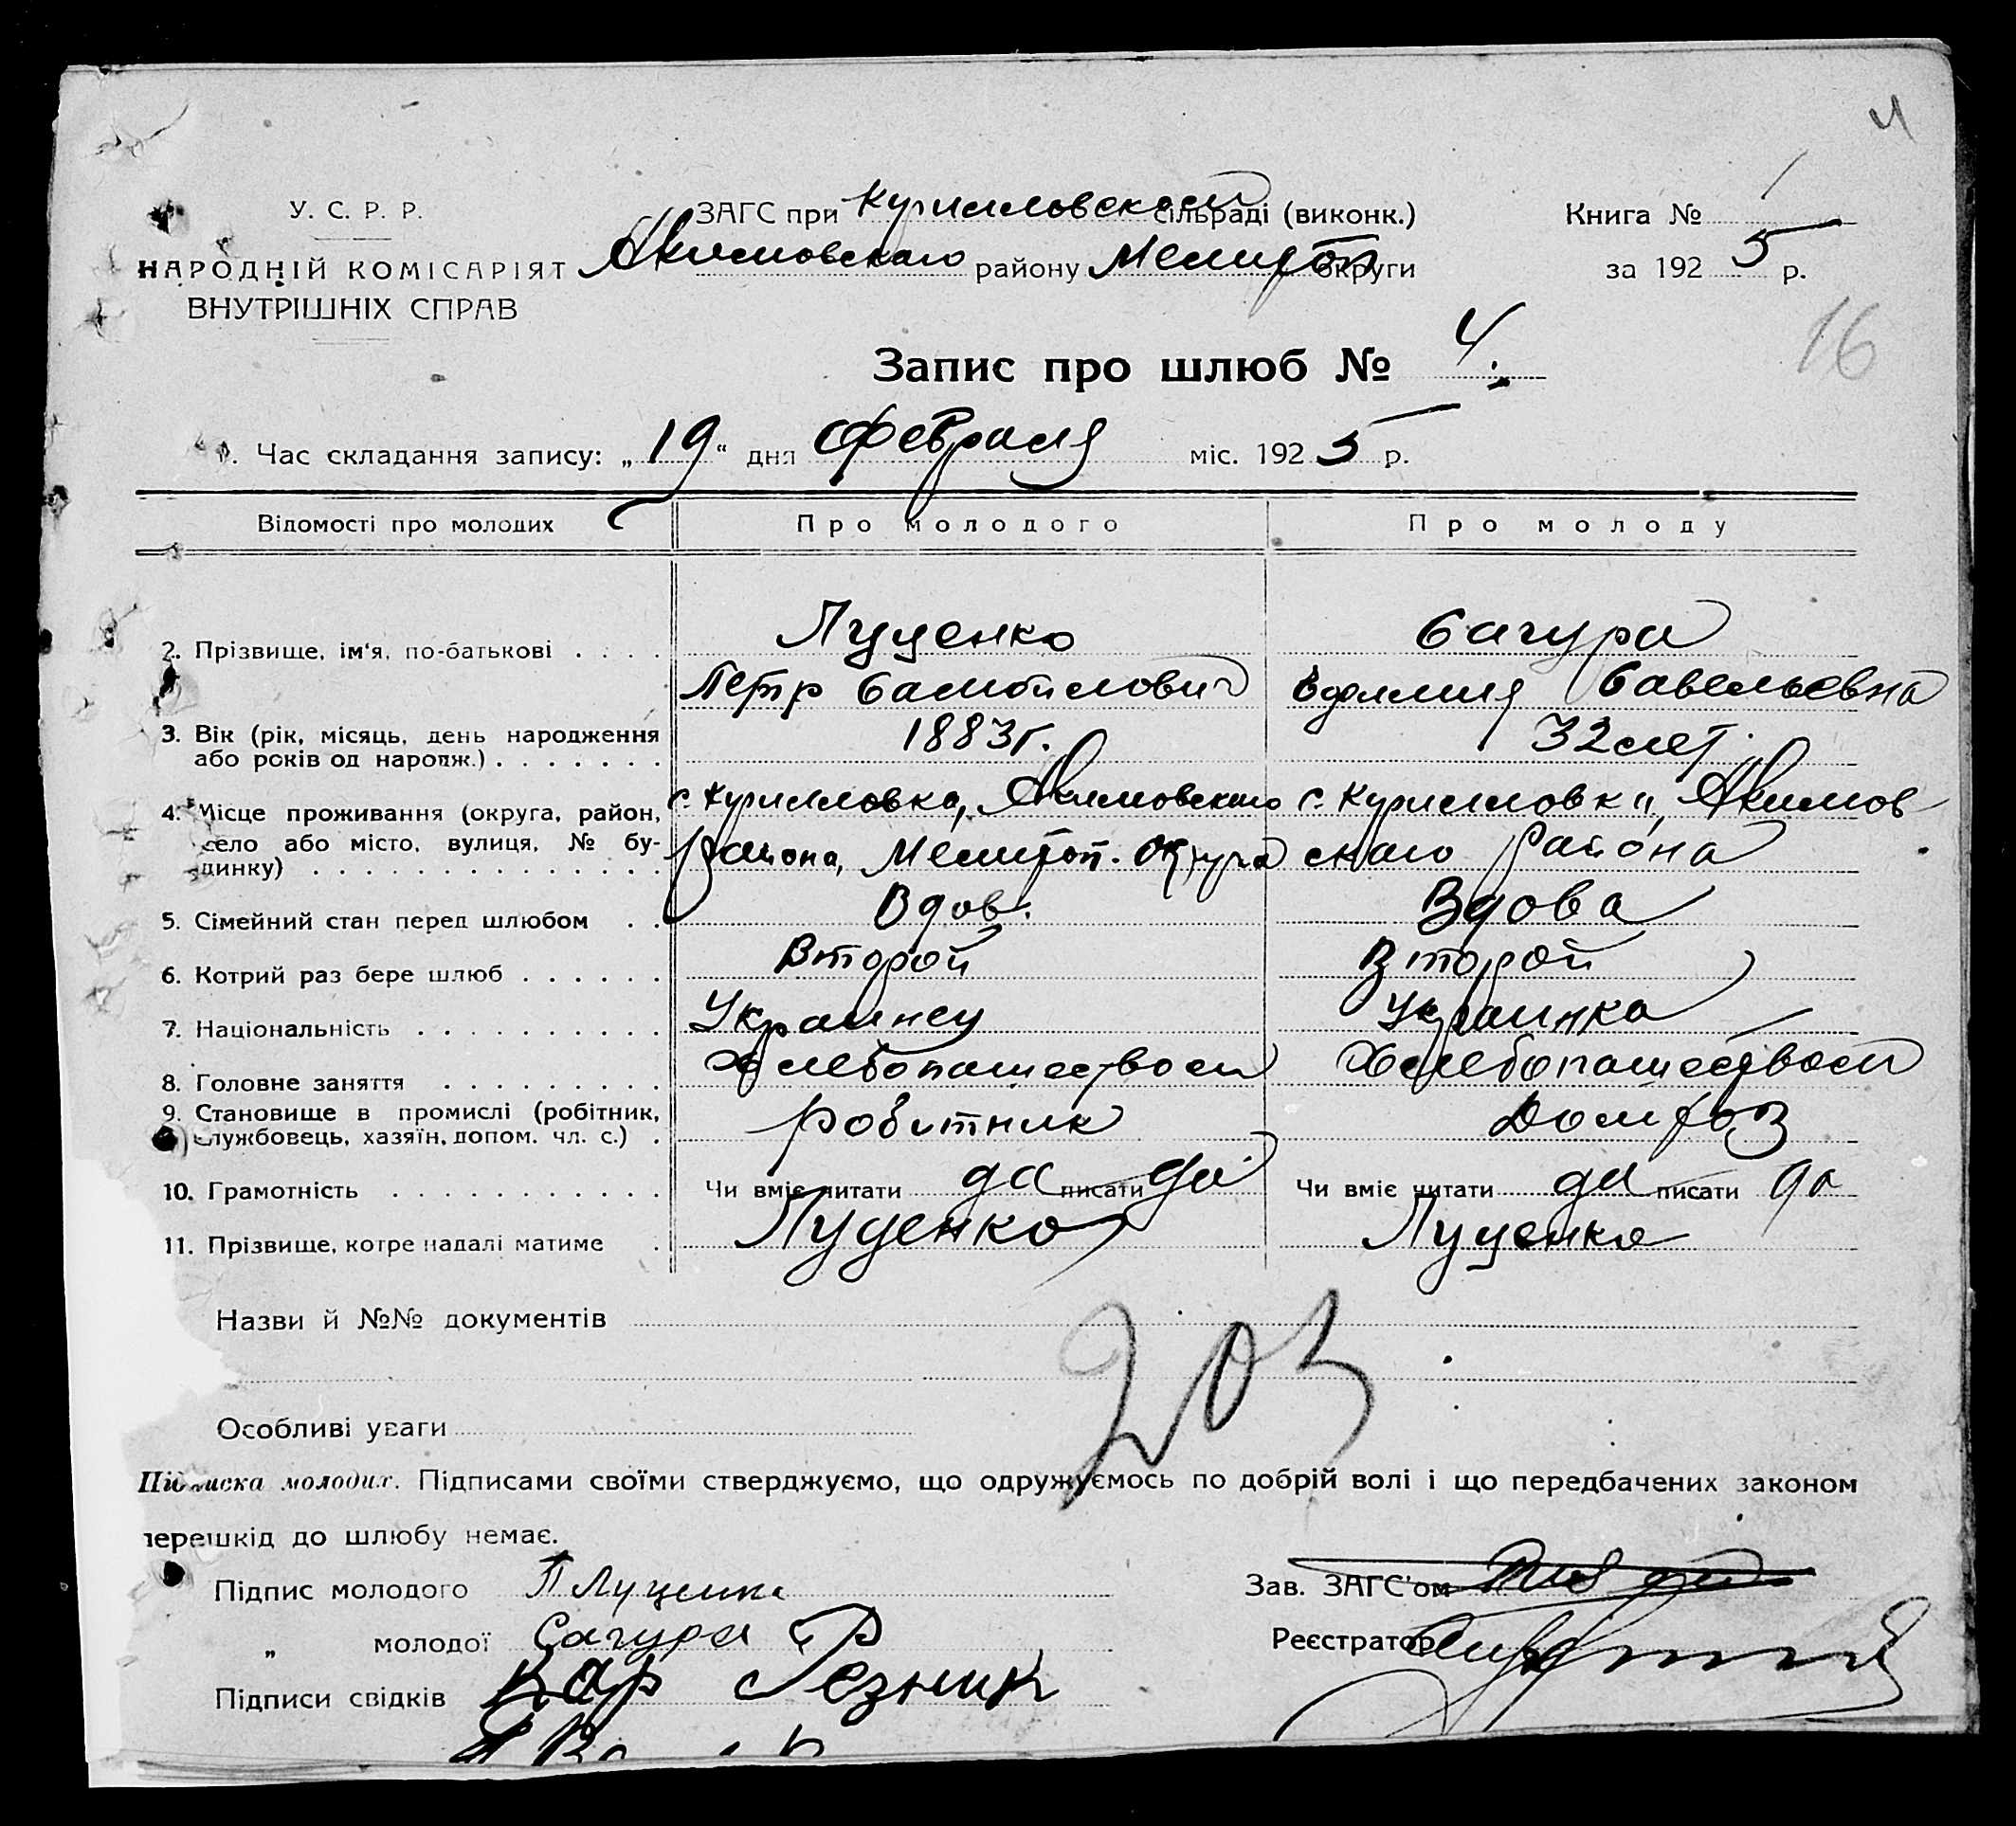 4
У. С. Р. Р.
НАРОДНІЙ КОМІСАРІЯТ
ВНУТРІШНІХ СПРАВ
ЗАГС при Кирилловской сільраді (виконк.)
Акимовскаго району Мелитоп округи
Книга № 1
за 192 5 р.
16
Запис про шлюб № 4.
1. Час складання запису: „19“ дня Февраля міс. 192 5 р.
Відомості про молодих Про молодого Про молоду
2. Прізвище, ім'я, по-батькові . . . . Луценко Сагура
Петр Самойлович Савельевна
3. Вік (рік, місяць, день народження 1883 г. 32 лет.
або років од народж.) . . . . . . .
4. Місце проживання (округа, район, с. Кирилловка, Акимовскаго с. Кирилловки, Акимов
село або місто, вулиця, № бу- района, Мелитоп. Округа скаго района
динку) . . . . . . . . . . . . . .
5. Сімейний стан перед шлюбом . . Вдов. Вдова
6. Котрий раз бере шлюб . . . . . . Второй Второй
7. Національність . . . . . . . . . . Украинец Украинка
8. Головне заняття . . . . . . . . . Хлебопашеством Хлебопашеством
9. Становище в промислі (робітник, робитник
службовець, хазяїн, допом. чл. с.) .
10. Грамотність . . . . . . . . . . . . Чи вміє читати да писати да Чи вміє читати да писати да
11. Прізвище, котре надалі матиме . Луценко Луценко
Назви й №№ документів
203
Особливі уваги
Підписка молодих. Підписами своїми стверджуємо, що одружуємось по добрій волі і що передбачених законом
перешкід до шлюбу немає.
Підпис молодого П Луценко
„ молодої Сагура
Підписи свідків Кар Резник
Зав. ЗАГС'ом
Реєстратор